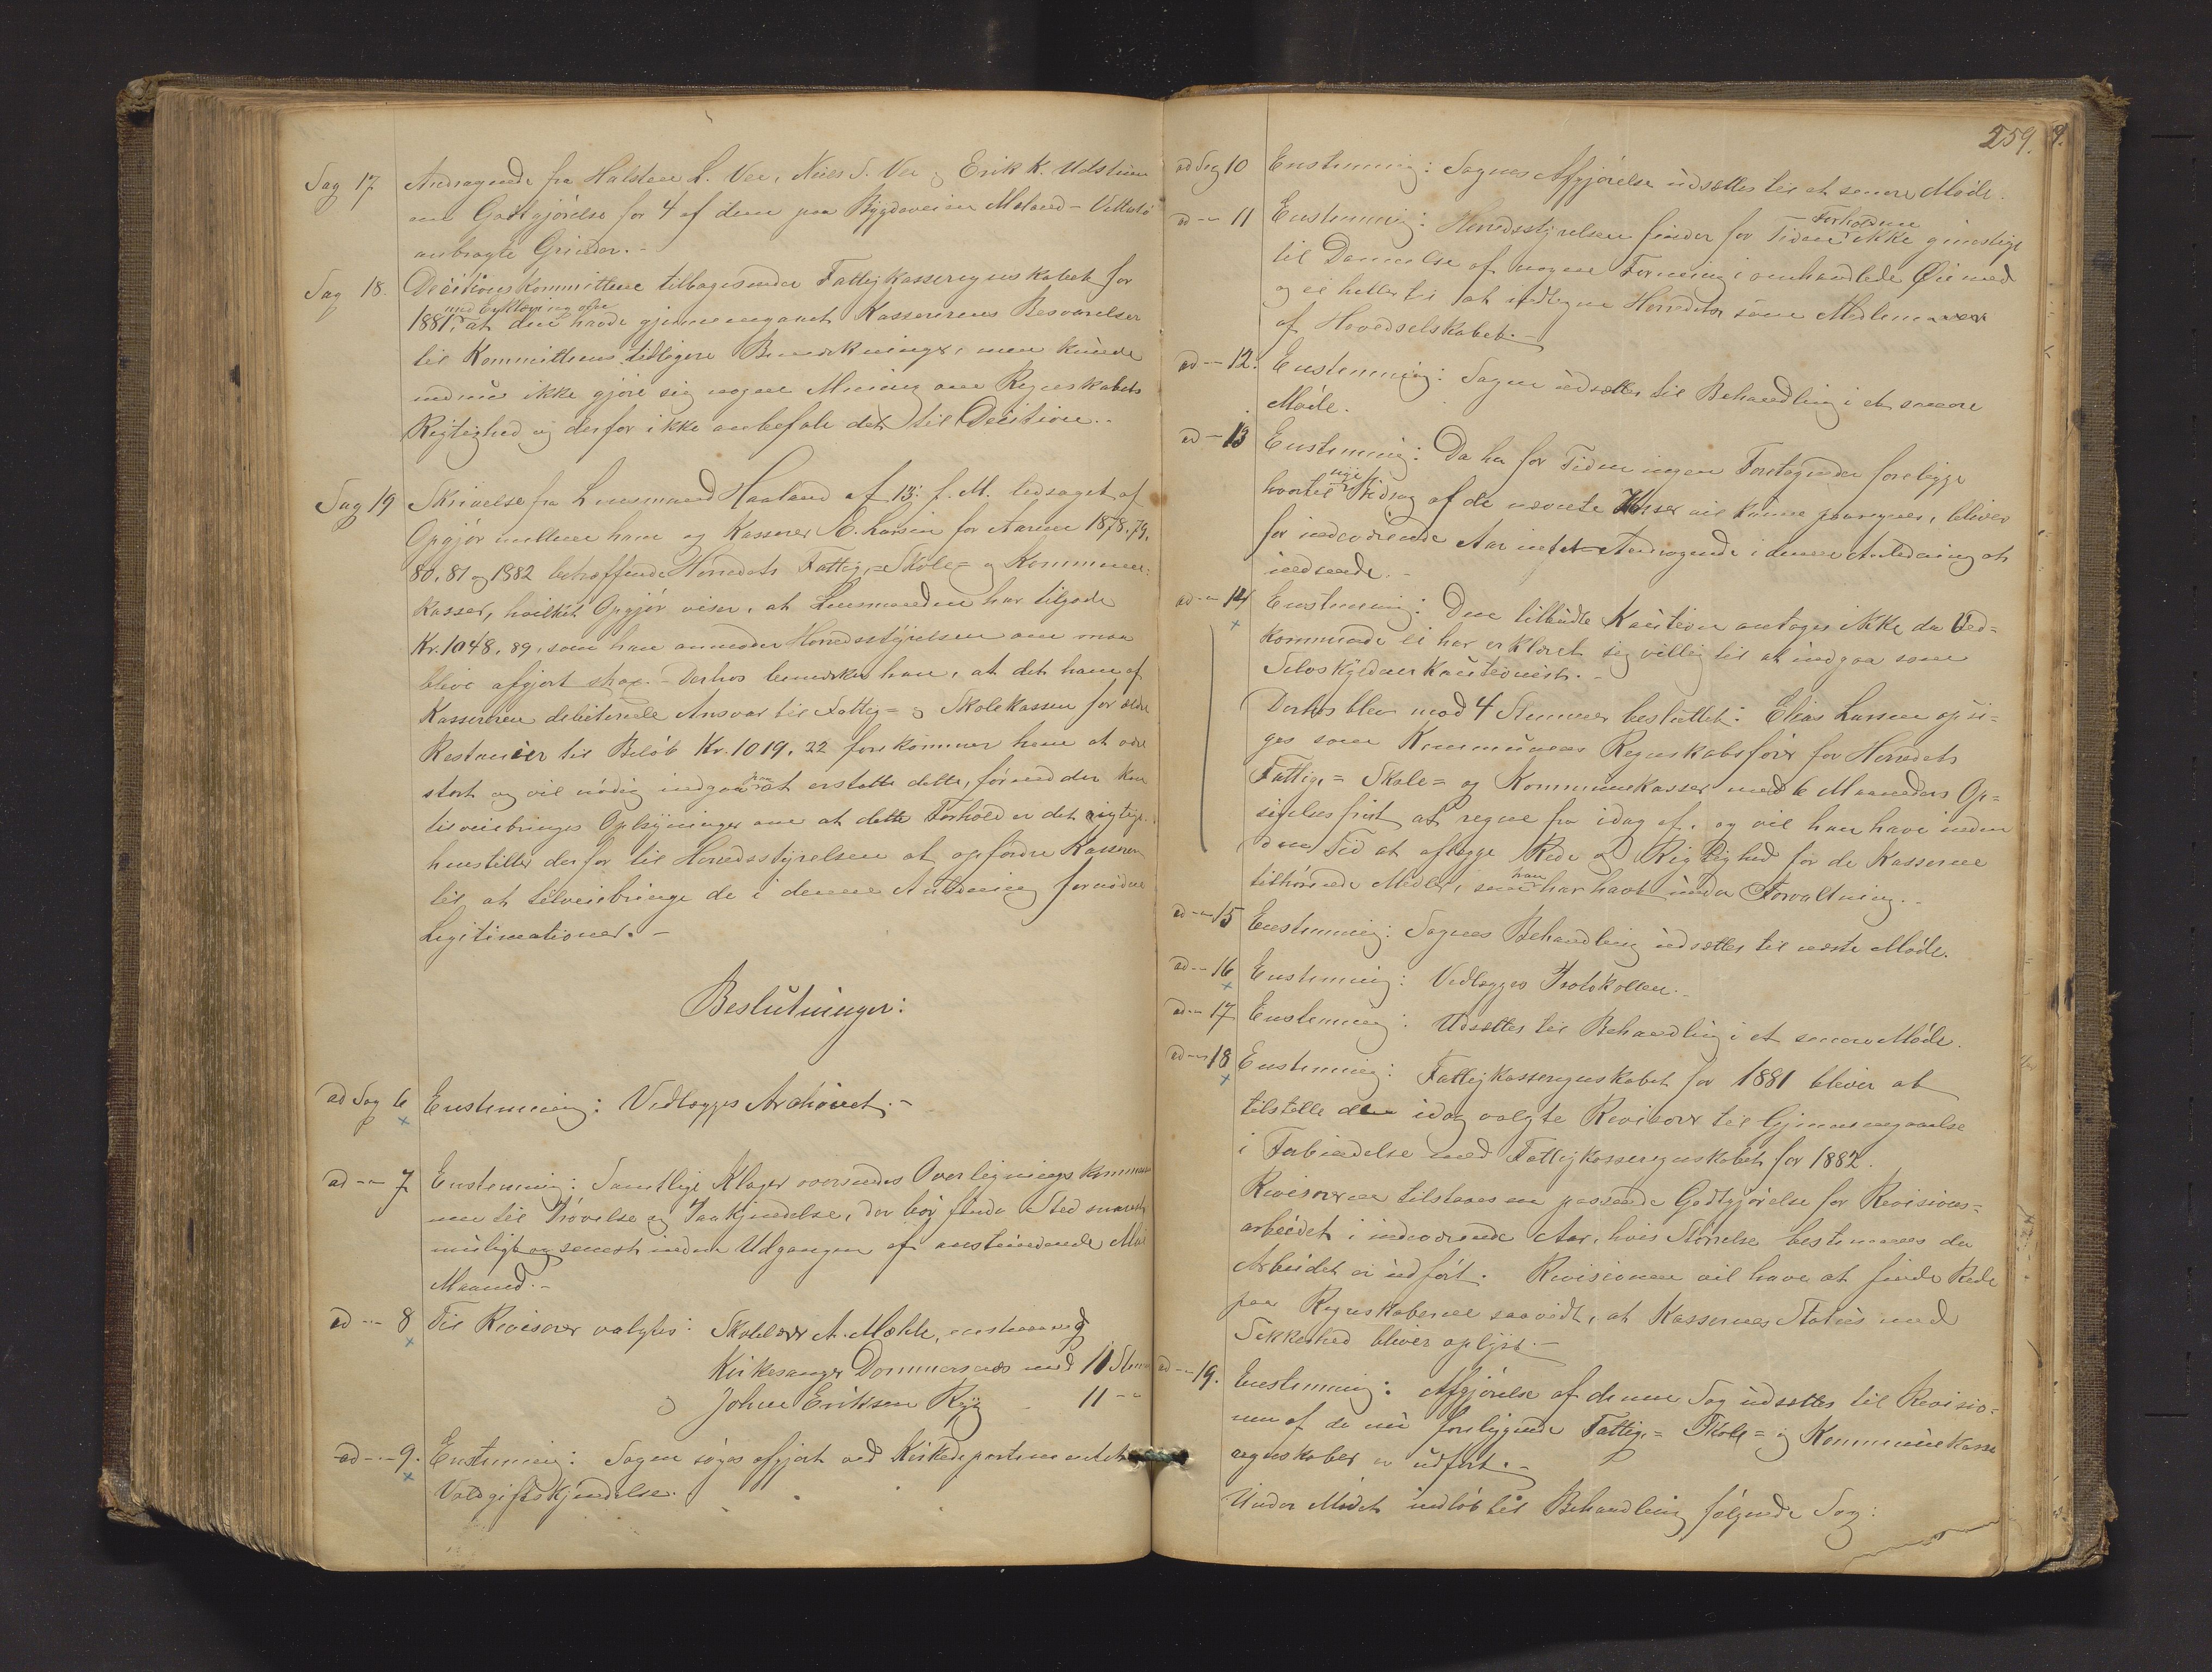 Sag 17 Andragende fra Halsten L. Vee, Niels S. Vee og Erik K. Udstuen
om Godtgjørelse for 4 af dem paa Bygdeveien Maland - Vettestø
anbragte Grinder. -
Sag 18. Decisionskommitteen tilbagesender Fattigkasseregnskabet for
med Erklæring ofr
1881, at den havde gjennemgaaet Kassererens Besvarelser
til Kommitteens tidligere Bemærkninger, men kunde
endnu ikke gjøre sig nogen Mening om Regnskabets
Rigtighed og derfor ikke anbefale det til Decision. -
Sag 19 Skrivelse fra Lensmand Haaland af 13. f. M. ledsaget af
Opgjør mellem ham og Kasserer E. Larsen for Aarene 1878, 79,
80, 81 og 1882 betræffende Herredets Fattig, = Skole = og Kommune-
kasser, hvilket Opgjør viser, at Lensmanden har tilgode
Kr. 1048,89, som han anmoder Herredsstyrelsen om maa
blive afgjort strax. - Derhos bemærker han, at det ham af
Kassereren debiterede Ansvar til Fattig = og Skolekassen for ældre
Restancer til Beløb Kr. 1019,22 forekommer ham at være
stort og vil nødig indgaa paa at erstatte dette, førend der kan
tilveiebringes Oplysninger om at dette Forhold er det rigtige.
henstiller derfor til Herredsstyrelsen at opfordre Kassereren
til at tilveiebringe de i denne Anledning fornødne
Legitimationer. -
Beslutninger:
ad Sag 6 Enstemmig: Vedlægges Archivet. -
ad -"- 7 Enstemmig: Samtlige Klager oversendes Overligningskommissio
nen til Prøvelse og Paakjendelse, der bør finde Sted snarest
muligt og senest inden Udgangen af anstundende Mai
Maaned. -
ad -"- 8 Til Revisorer valgtes: Skolelærer A. Mæhle, enstemmig
Kirkesanger Dommersnæs med 11 Stem
og Johan Eriksen Ryg - 11 -"-
ad -"- 9. Enstemmig: Sagen søges afgjort ved Kirkedepartementets
Voldgiftskjendelse.
259.
ad Sag 10 Enstemmig: Sagens Afgjørelse udsættes til et senere Møde.
ad -"- 11 Enstemmig: Herredsstyrelsen finder for Tiden Forholdene ikke gunstige
til Dannelse af nogen Forening i omhandlede Øiemed
og ei heller til at indtegne Herredet som Medlem
af Hovedselskabet. -
ad -"- 12. Enstemmig: Sagen udsættes til Behandling i et senere
Møde.
ad - 13 Enstemmig: Da her for Tiden ingen Foretagender foreligge
hvortil nye Bidrag af de nævnte Kasser vil kunne paaregnes, bliver
for indeværende Aar intet Andragende i denne Anledning at
indsende. -
ad -"- 14 Enstemmig: Den tilbudte Kaution antages ikke da Ved=
kommende ei har erklæret sig villig til at indgaa som
Selvskyldnerkautionist. -
Derhos blev mod 4 Stemmer besluttet: Elias Larsen opsi=
ges som Kommunens Regnskabsfører for Herredets
Fattig, = Skole = og Kommunekasser med 6 Maaneders Op=
sigelsesfrist at regne fra idag af, og vil han have inden
den Tid at aflægge Rede og Rigtighed for de Kasserne
tilhørende Midler, som han har havt under Forvaltning. -
ad -"- 15 Enstemmig: Sagens Behandling udsættes til næste Møde.
ad -"- 16 Enstemmig: Vedlægges Protokollen. -
ad -"- 17 Enstemmig: Udsættes til Behandling i et senere Møde.
ad -"- 18 Enstemmig: Fattigkasseregnskabet for 1881 bliver at
tilstelle den idag valgte Revisorer til Gjennemgaaelse
i Forbindelse med Fattigkasseregnskabet for 1882.
Revisorerne tilstaaes en passende Godtgjørelse for Revisions=
arbeidet i indeværende Aar, hvis Størrelse bestemmes da
Arbeidet er udført. Revisionen vil have at finde Rede
paa Regnskaberne saavidt, at Kassernes Status med
Sikkerhed bliver oplyst. -
ad -"- 19. Enstemmig: Afgjørelse af denne Sag udsættes til Revisio=
nen af de nu foreliggende Fattig, = Skole = og Kommunekasse
regnskaber er udført. -
Under Mødet indløb til Behandling følgende Sag: